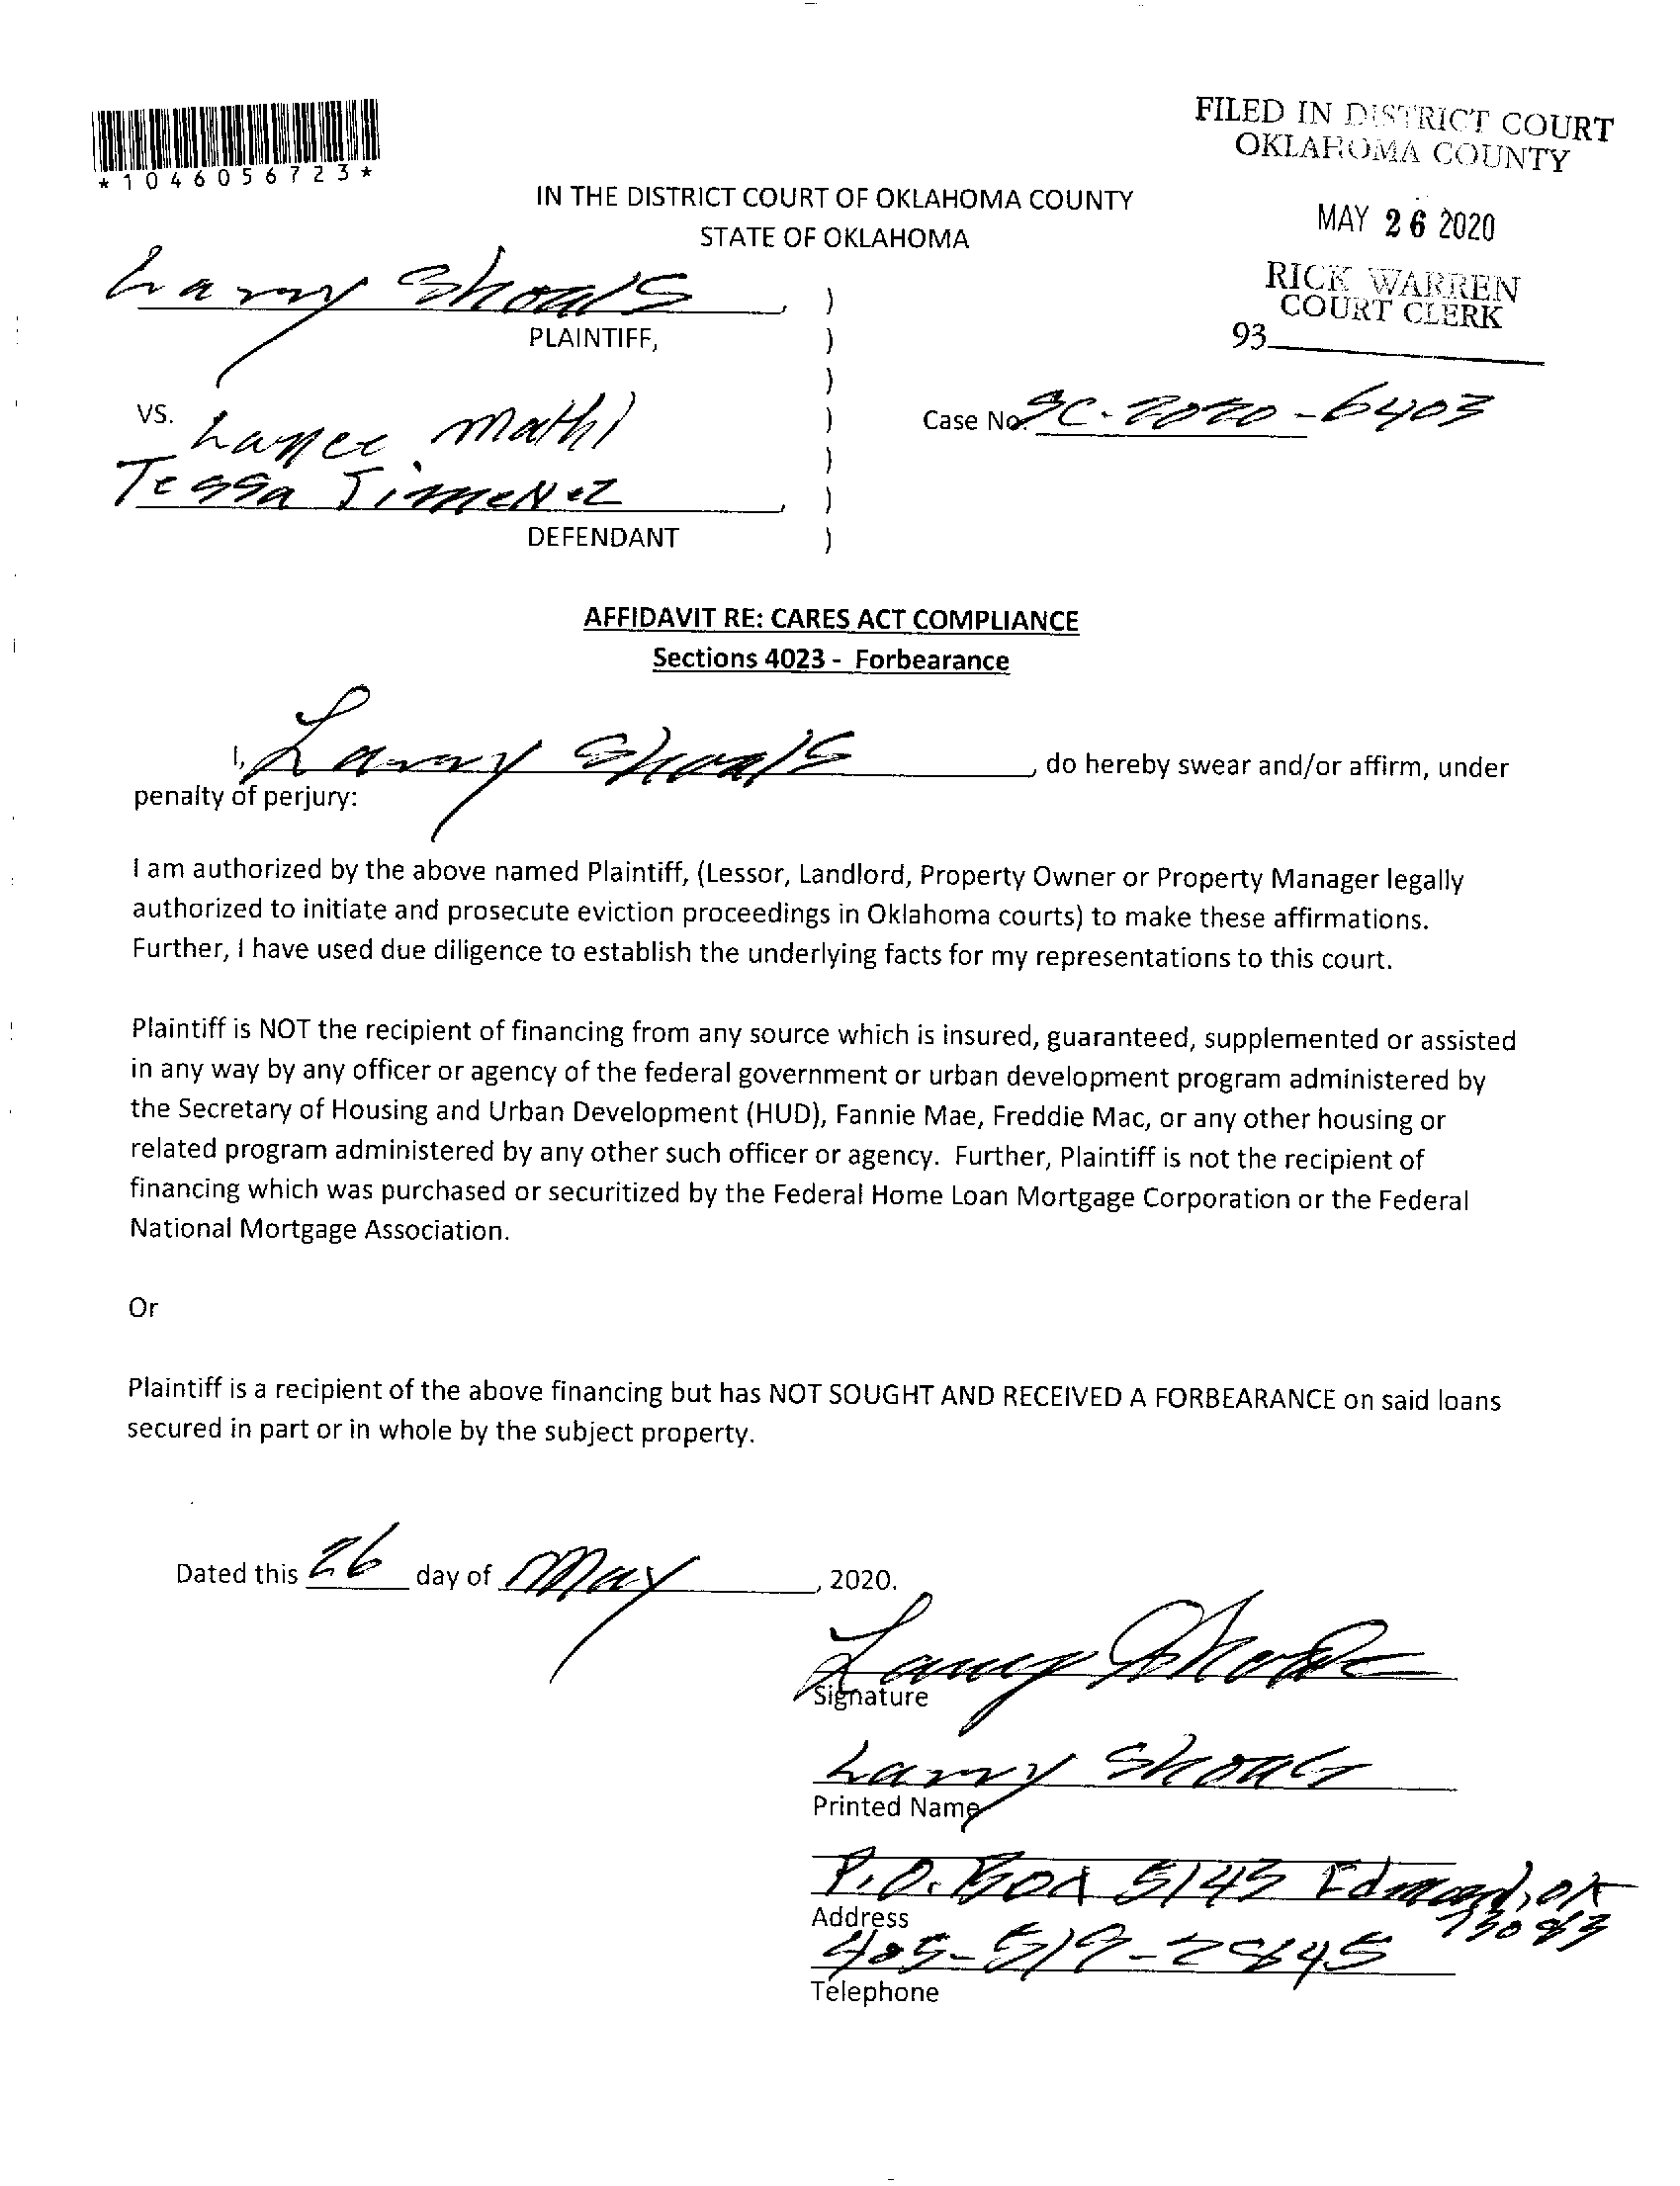 *1046056723*
FILED IN DISTRICT COURT
OKLAHOMA COUNTY
MAY 26 2020
RICK WARREN
COURT CLERK
93
IN THE DISTRICT COURT OF OKLAHOMA COUNTY
STATE OF OKLAHOMA
Larry Shoals, )
PLAINTIFF, )
)
VS. )
Case No. SC-2020-6403
)
Tessa Jimenez, )
DEFENDANT )
AFFIDAVIT RE: CARES ACT COMPLIANCE
Sections 4023 - Forbearance
I, Larry Shoals, do hereby swear and/or affirm, under
penalty of perjury:
I am authorized by the above named Plaintiff, (Lessor, Landlord, Property Owner or Property Manager legally
authorized to initiate and prosecute eviction proceedings in Oklahoma courts) to make these affirmations.
Further, I have used due diligence to establish the underlying facts for my representations to this court.
Plaintiff is NOT the recipient of financing from any source which is insured, guaranteed, supplemented or assisted
in any way by any officer or agency of the federal government or urban development program administered by
the Secretary of Housing and Urban Development (HUD), Fannie Mae, Freddie Mac, or any other housing or
related program administered by any other such officer or agency. Further, Plaintiff is not the recipient of
financing which was purchased or securitized by the Federal Home Loan Mortgage Corporation or the Federal
National Mortgage Association.
Or
Plaintiff is a recipient of the above financing but has NOT SOUGHT AND RECEIVED A FORBEARANCE on said loans
secured in part or in whole by the subject property.
Dated this 26 day of May, 2020.
Larry Shoals
Signature
Larry Shoals
Printed Name
P.O. Box 5143 Edmond, OK
73083
Address
Telephone